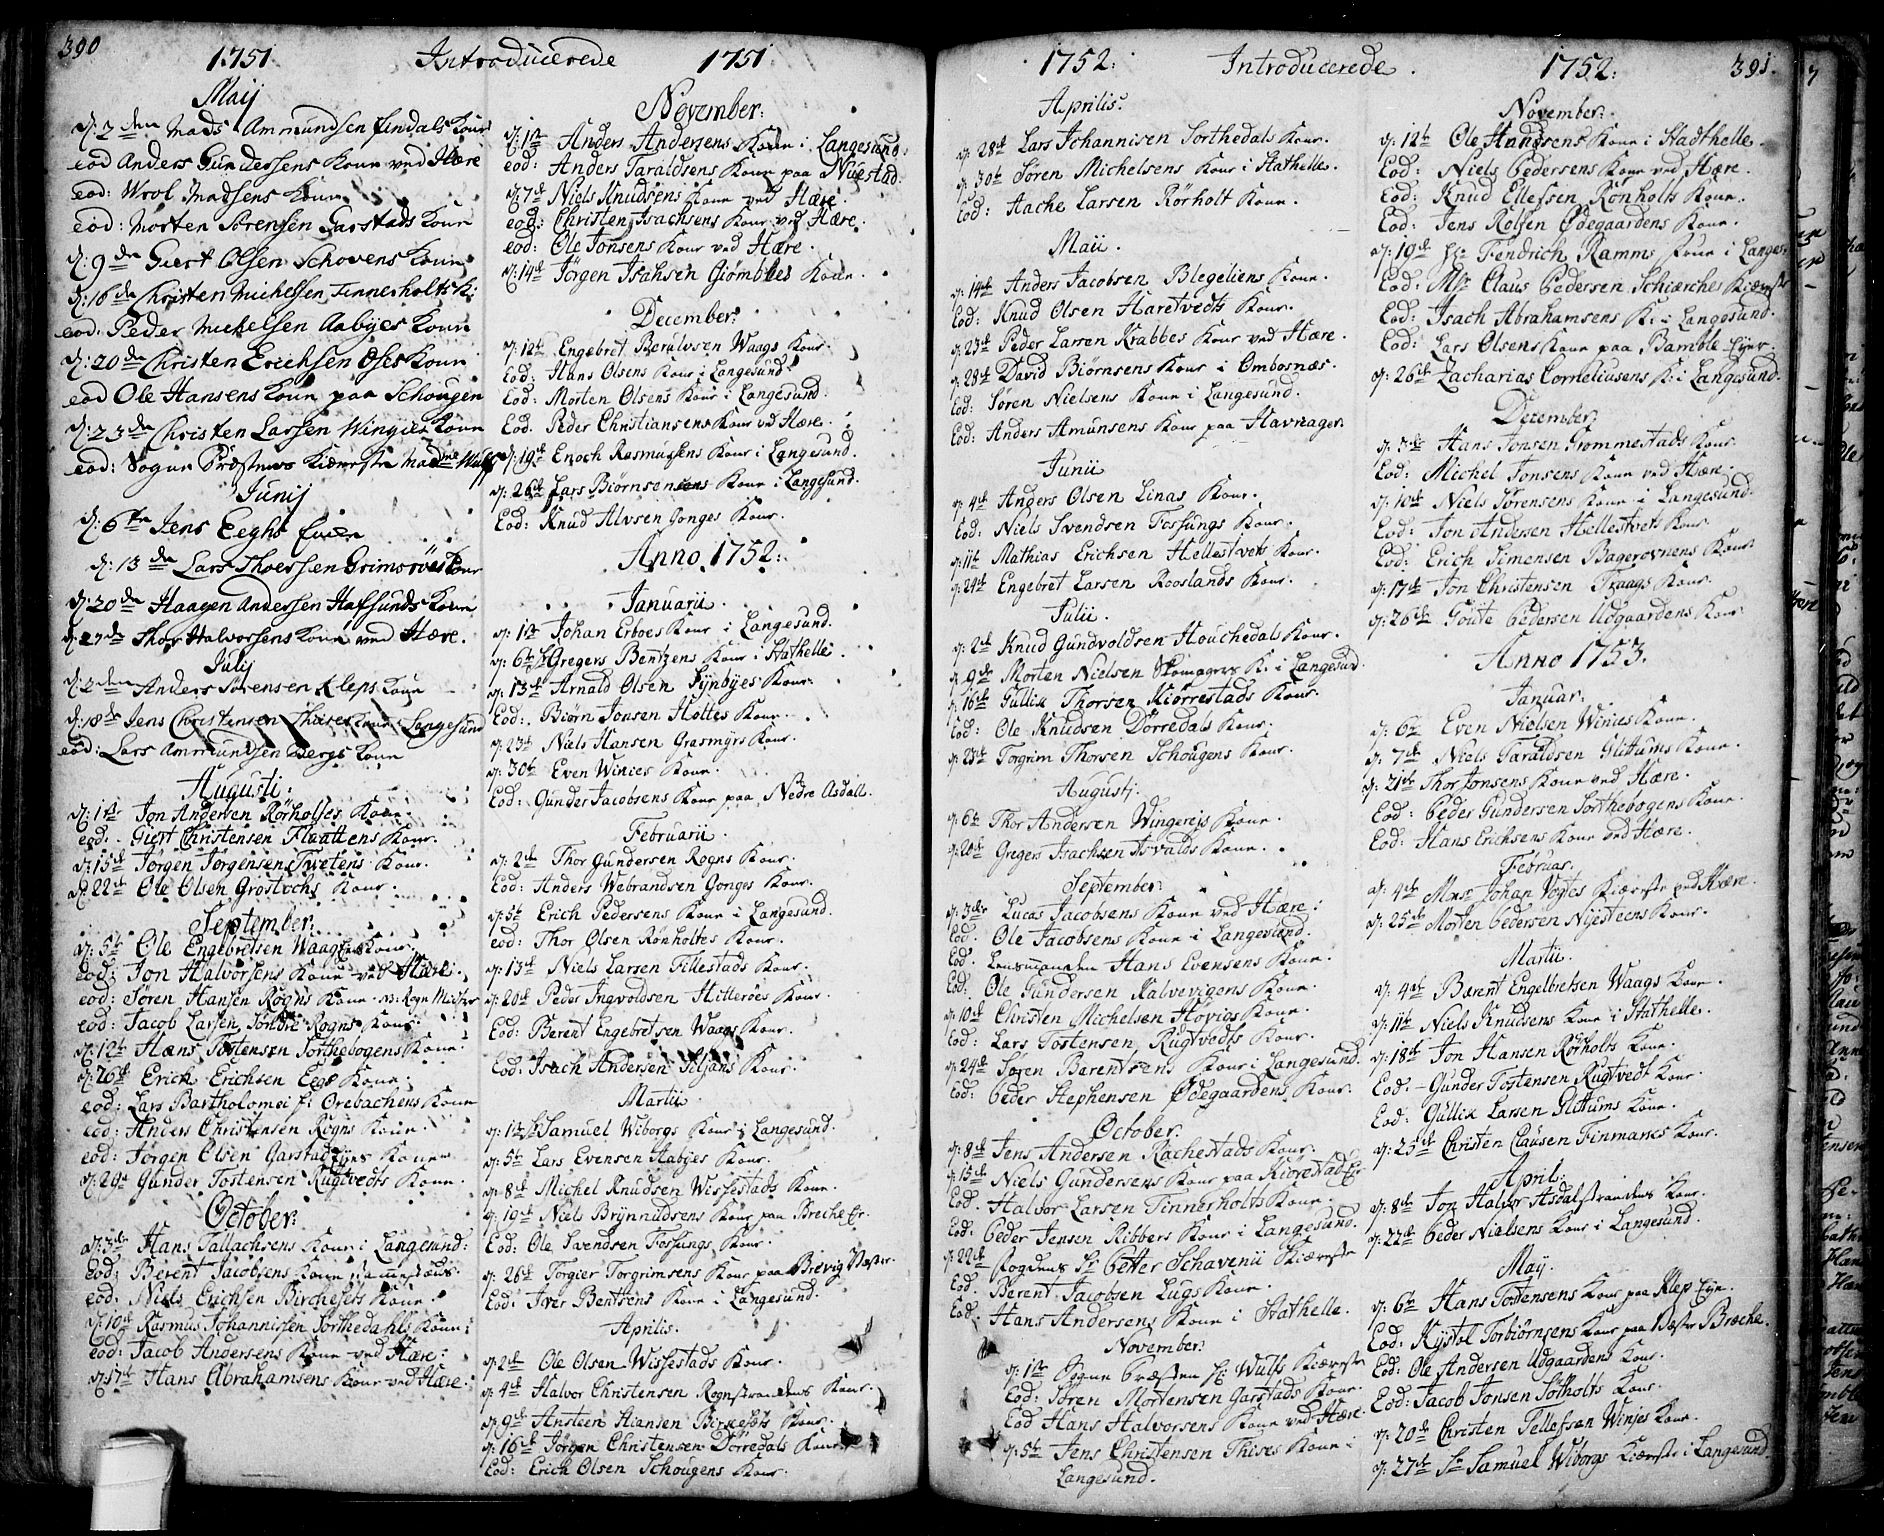 390
1751. Introducerede 1751.
Maij
d: 2den Mads Ammundsen Findals Koun
eod Anders Gundersens Koun ved Hære
eod: Wrol Madsens Koun
eod: Morten Sørensen Garstads Koun
d: 9de Giert Olsen Schovens Koun
d: 16de Christen Michelsen Finnerholts K:
eod: Peder Michelsen Aabyes Koun
d: 20de Christen Erichsen Oses Koun
eod Ole Hansens Koun paa Schougen
d: 23de Christen Larsen Wingies Koun
eod: Sogne Præstens Kiæreste Madme Wulf
Junij
d: 6te Jens Eeghs
d: 13de Lars Thoersen Grimsrøes Koun
d: 20de Haagen Andersen Hafsunds Koun
d: 27de Thor Halvorsens Koun ved Hære.
Julij
d: 2den Anders Sørensen Kleps Koun
d: 18de Jens Christensen Thises Koun i Langesund
eod: Lars Ammundsen Bergs Koun
Augusti:
d: 1ste Jon Andersen Rørholtes Kone.
eod. Giert Christensen Flaattens Kone.
d: 15de Jørgen Jørgensen Twetens Kone.
d: 22de Ole Olsen Grostochs Kone.
September:
d: 5te Ole Engebretsen Waagens Kone.
eod: Jon Halvorsens Kone ved Hære.
eod: Søren Hansen Rogns Kone
eod: Jacob Larsen Søndre Rogns Kone
d: 12te Hans Tostensen Sorthebogens Kone.
d: 26de Erick Erichsen Eegs Kone.
eod: Lars Bartholomei f: Ørebachens Kone
eod: Anders Christensen Rogns Kone.
eod: Jørgen Olsen Garstad Eyes Konen
d: 29de Gunder Tostensen Rugtvedts Kone.
October:
d: 3de Hans Tallachsens Kone i Langesund:
Eod: Berent Jacobsens Kone
eod: Niels Erichsen Birchesets Kone.
d: 10de Rasmus Johannissen Sorthedahls Kone:
eod: Jacob Andersens Kone ved Hære:
d: 17de Hans Abrahamsens Kone ved Hære.
November:
d: 1ste Anders Andersens Kone i Langesund.
eod: Anders Taraldsens Kone paa Nuestad.
d: 7de Niels Knudsens Kone ved Hære.
eod: Christen Isachsens Kone ved Hære.
eod: Ole Jonsens Kone ved Hære.
d: 14de Jørgen Isaksen Giømbles Kone.
December:
d: 12te Engebret Berulvsen Waags Kone.
Eod: Hans Olsens Kone i Langesund.
Eod: Morten Olsens Kone i Langesund.
Eod: Peder Christiansens Kone ved Hære.
d: 19de Enoch Rasmussens Kone i Langesund.
d: 26de Lars Biørnsens Kone i Langesund.
Eod: Knud Alvsen Gonges Kone.
Anno 1752:
Januarii.
d: 1ste Johan Erboes Kone i Langesund.
d: 6te Sr Gregers Bentzens Kone i Stathelle.
d: 13de Arnald Olsen Synbyes Kone.
Eod: Biørn Jonsen Holtes Kone.
d: 23de Niels Hansen Grasmyrs Kone.
d: 30te Even Winies Kone.
Eod: Gunder Jacobsens Kone paa Nedre Asdall.
Februarii.
d: 2de Thor Gundersen Rogns Kone.
Eod: Anders Webrandsen Gonges Kone.
d: 5te Erich Pedersens Kone i Langesund.
eod: Thor Olsen Rønholtes Kone.
d: 13de Niels Larsen Tillestads Kone.
d: 20de Peder Ingvoldsen Hitterøes Kone.
Eod: Berent Engebretsen Waags Kone.
Eod: Isach Andersen Stljans Kone.
Martii.
d: 1ste Sr Samuel Wiborgs Kone i Langesund.
d: 5te Lars Evensen Aabyes Kone.
d: 8de Michel Knudsen Wissestads Kone.
d: 19de Niels Brynnudsens Kone paa Breche Er.
Eod: Ole Svendsen Fossungs Kone.
d: 26de Torgier Torgrimsens Kone paa Brevig Wester
Eod: Iver Bentsens Kone i Langesund.
Aprilis.
d: 2de Ole Olsen Wissestads Kone.
d: 4de Halvor Christensen Rognstrandens Kone.
d: 9de Ansteen Hansen Birkesets Kone.
d: 16de Jørgen Christensen Dørredals Kone.
Eod: Erich Olsen Schougens Kone.
1752. Introducerede. 1752. 391.
Aprilis.
d: 28de Lars Johannisen Sorthedals Kone.
d: 30te Søren Michelsens Kone i Stathelle.
Eod: Aache Larsen Rørholt Kone.
Maii.
d: 14de Anders Jacobsen Blegeliens Kone.
Eod: Knud Olsen Haretvedts Kone.
d: 23de Peder Larsen Krabbes Kone ved Hære.
d: 28de David Biørnsens Kone i Ombosnæs.
Eod: Søren Nielsens Kone i Langesund.
Eod: Anders Amunsens Kone paa Havnager.
Junii
d: 4de Anders Olsen Linas Kone.
Eod: Niels Svendsen Fossungs Kone.
d: 11te Mathias Erichsen Hellestvets Kone.
d: 24de Engebret Larsen Rooslands Kone.
Julii.
d: 2de Knud Gundvoldsen Houchedals Kone.
d: 9de Morten Nielsen Skomagers K: i Langesund.
d: 16de Gullik Thorsen Kiørrestads Kone.
Eod: Ole Knudsen Dørredals Kone.
d: 23de Torgrim Thorsen Schougens Kone.
Augustj.
d: 6te Thor Andersen Wingereis Kone.
d: 20de Gregers Isachsen Asvalds Kone.
September:
d: 3die Lucas Jacobsens Kone ved Hære:
Eod. Ole Jacobsens Kone i Langesund.
Eod. Lensmanden Hans Evensens Kone.
Eod: Ole Gundersen Kalvevigens Kone.
d: 10de Christen Michelsen Hovigs Kone.
Eod: Lars Tostensen Rugtvedts Kone.
d: 24de Søren Barentsens Kone i Langesund.
Eod: Peder Stephensen Ødegaardens Kone.
October.
d: 8de Jens Andersen Rachestads Kone.
d: 15de Niels Gundersens Kone paa Kiørestad Er
Eod. Halvor Larsen Tinnerholts Kone.
Eod: Peder Jensen Ribbers Kone i Langesund.
d: 22de Fogdens Sr Petter Schavenii Kiæreste
Eod. Berent Jacobsen Lugs Kone.
Eod: Hans Andersens Kone i Stathelle.
November:
d: 1ste Sogne Præsten Hr Wulfs Kiæreste
Eod: Søren Mortensen Garstads Kone.
Eod Hans Halvorsens Kone ved Hære.
d: 5te Jens Christensen Thises Kone i
Langesund.
November:
d: 12te Ole Handsens Kone i Stadthelle.
Eod: Niels Pedersens Kone ved Hære.
Eod: Knud Ellefsen Rønholts Kone.
Eod: Jens Rolfsen Ødegaardens Kone.
d: 19de Hr Fendrich Ramms Kone i Langes:
Eod: Mr Claus Pedersen Schierches Kiæreste
Eod: Isach Abrahamsens K: i Langesund.
Eod: Lars Olsens Kone paa Bamble Eyer.
d: 26de Zacharias Corneliusens K: i Langesund.
December:
d: 3de Hans Jonsen Grommestads Kone.
Eod: Michel Jonsens Kone ved Hære.
d: 10de Niels Sørensens Kone i Langesund.
Eod: Jon Andersen Hellestvets Kone.
Eod: Erich Simensen Bagerovnens Kone.
d: 17de Jon Christensen Traags Kone.
d: 26de Goute Pedersen Udgaardens Kone
Anno 1753.
Januar.
d: 6te Even Nielsen Winies Kone.
d: 7de Niels Taraldsen Glittums Kone.
d: 21de Thor Jonsens Kone ved Hære.
Eod: Peder Gundersen Sorthebogens Kone.
Eod: Hans Erichsens Kone ved Hære.
Februar.
d: 4de Mns Johan Vogtes Kiæreste ved Hære.
d: 25de Morten Pedersen Nijesteens Kone.
Martii.
d: 4de Bærent Engelbretsen Waags Kone.
d: 11te Niels Knudsens Kone i Stathelle.
d: 18de Jon Hansen Rørholts Kone.
Eod. Gunder Tostensen Rugtvedt Kone.
Eod: Gullik Larsen Glittums Kone.
d: 25de Christen Clausen Finmarkes Kone.
April:
d: 8de Jon Halvor Asdalstrandens Kone.
d: 22de Peder Nielsens Kone i Langesund.
May.
d: 6te Hans Tostensens Kone paa Klep Eyn.
Eod: Kystol Torbiørnsens Kone paa Wæster Bræche.
Eod: Ole Andersen Udgaardens Kone.
Eod: Jacob Jonsen Solholts Kone.
d: 20de Christen Tellefsen Winjes Kone.
d: 27de Sr Samuel Wiborgs Kiæreste i Langesund.